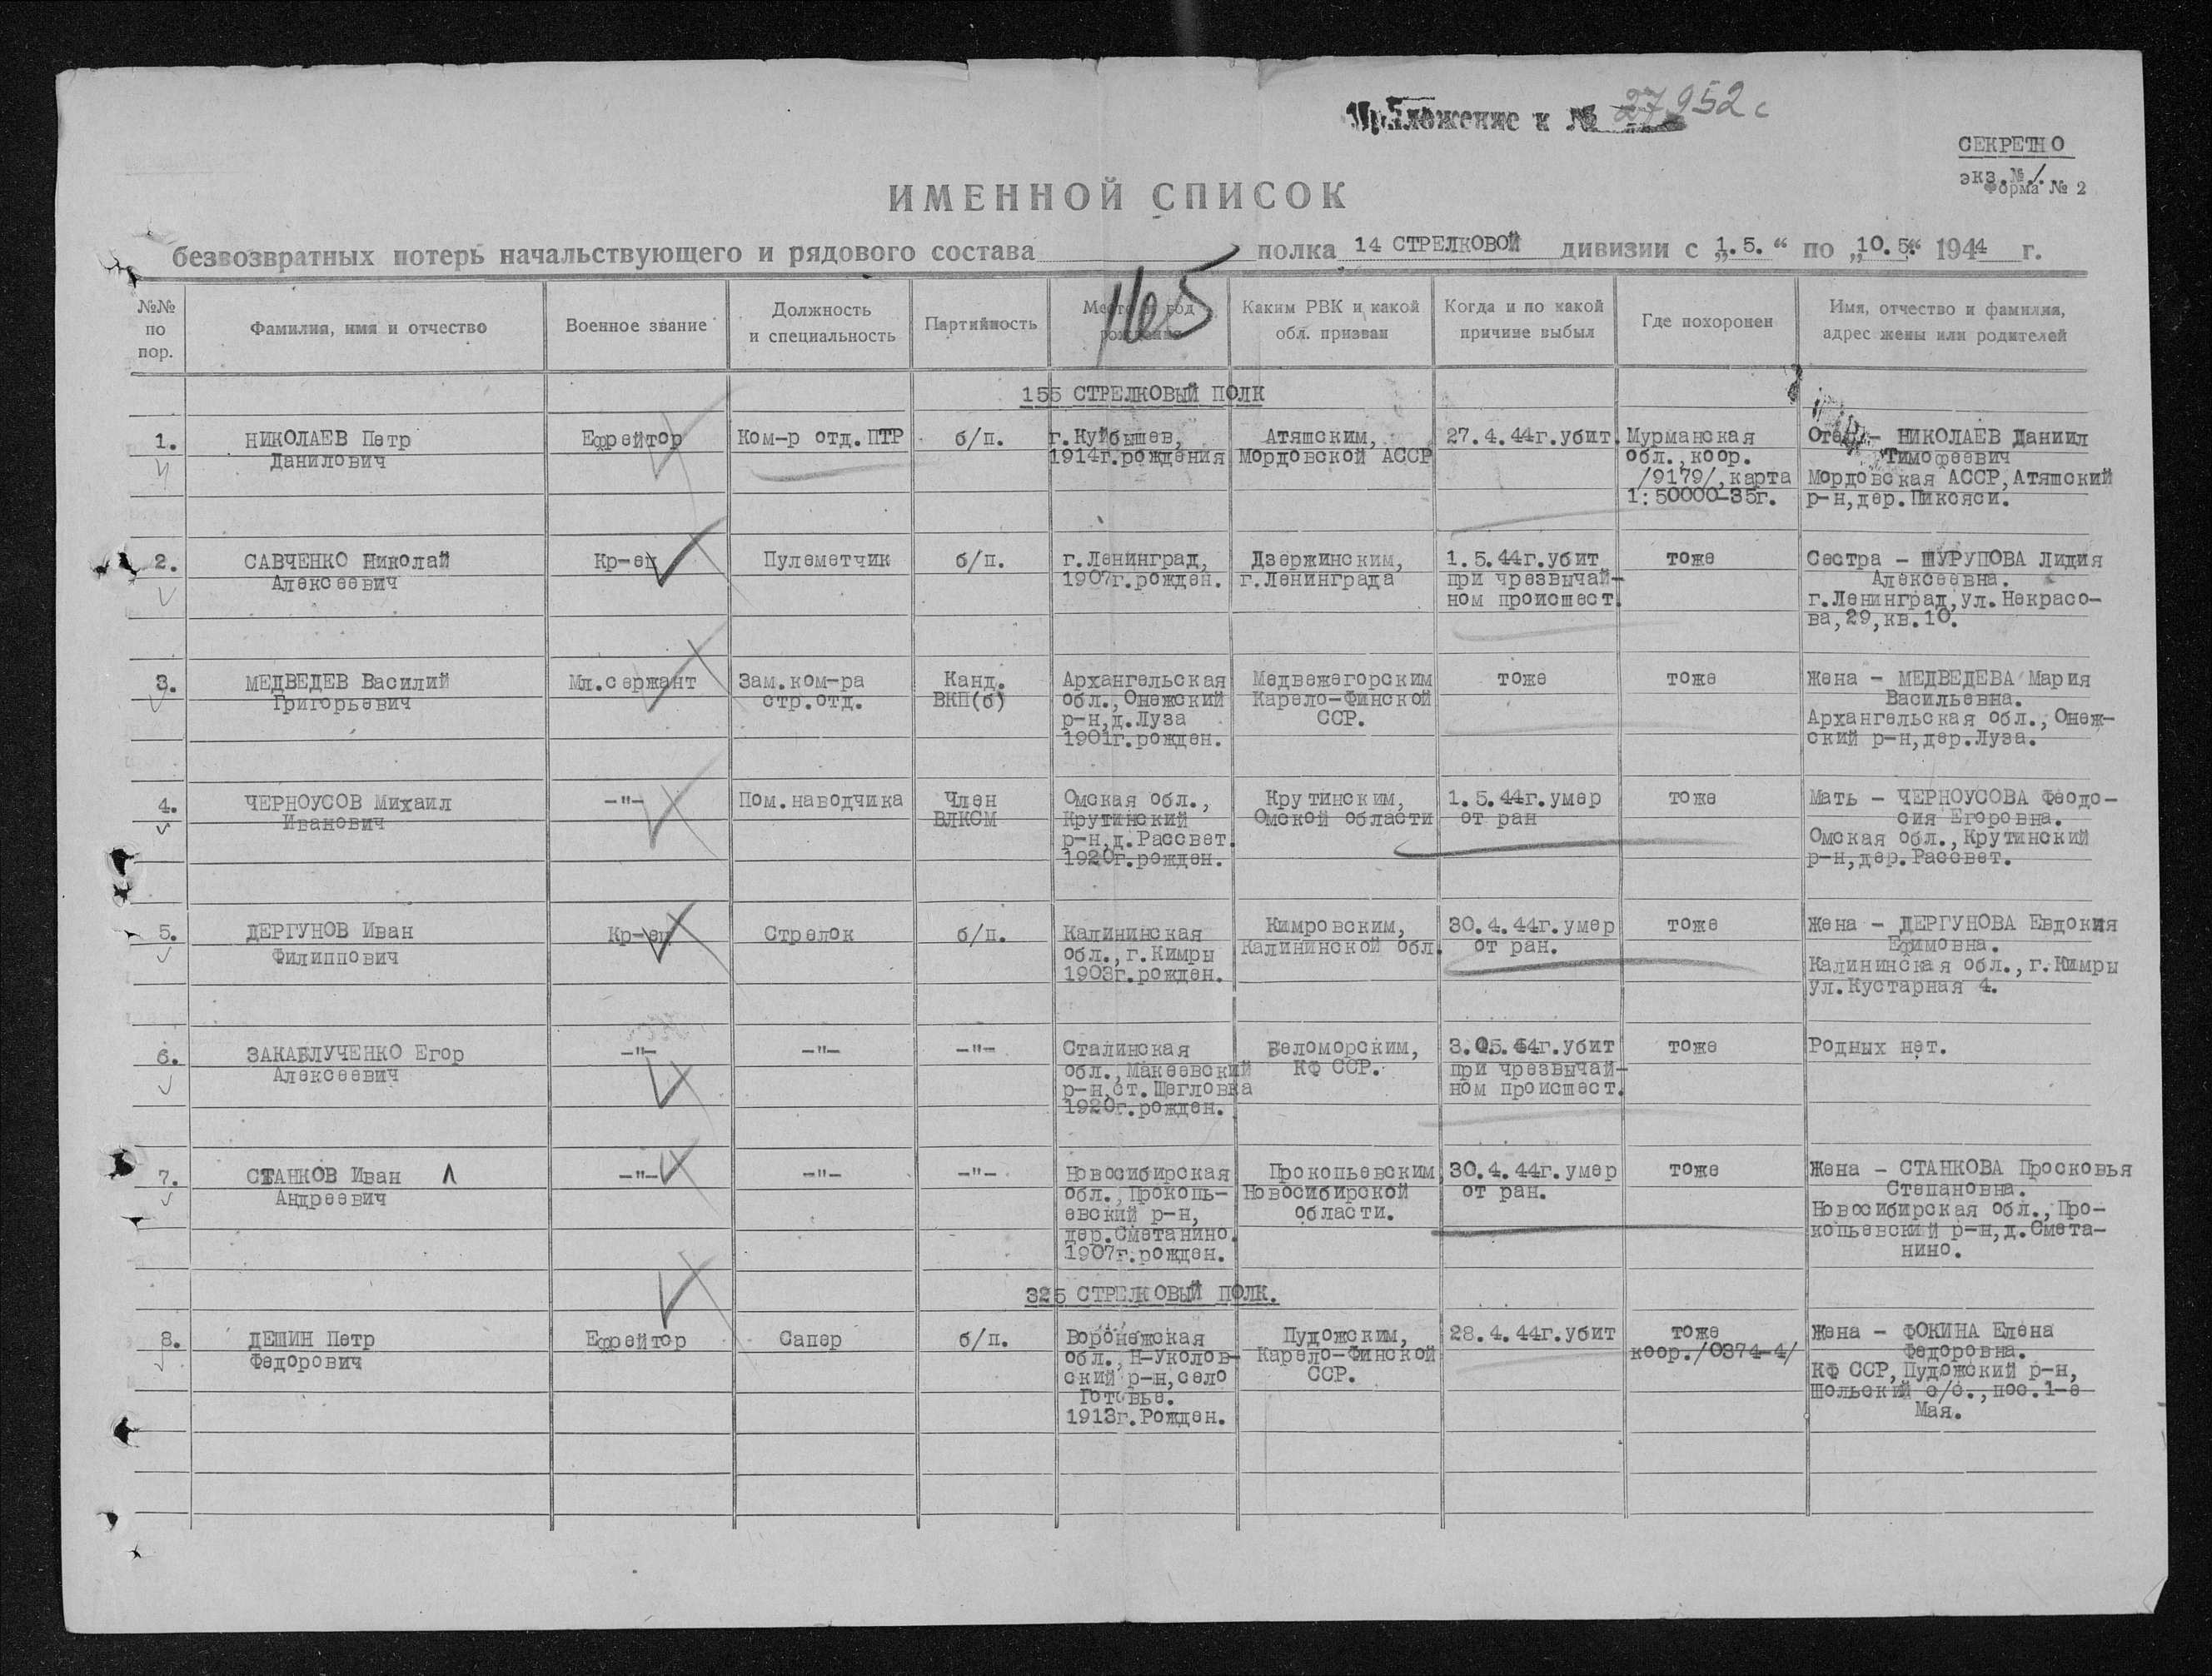 Приложение к № 27952с
СЕКРЕТНО
экз.№ 1.
Форма № 2
ИМЕННОЙ СПИСОК
безвозвратных потерь начальствующего и рядового состава полка 14 СТРЕЛКОВОЙ дивизии с „1.5.“ по „10.5.“ 1944 г.
165
№№ по пор.
Фамилия, имя и отчество
Военное звание
Должность
и специальность
Партийность
Место и год
рождения
Каким РВК и какой
обл. призван
Когда и по какой
причине выбыл
Где похоронен
Имя, отчество и фамилия,
адрес жены или родителей
155 СТРЕЛКОВЫЙ ПОЛК
1.
НИКОЛАЕВ Петр
Данилович
Ефрейтор
Ком-р отд.ПТР
б/п.
г.Куйбышев,
1914г.рождения
Атяшским,
Мордовской АССР
27.4.44г.убит.
Мурманская
обл.,коор.
/9179/,карта
1:50000-35г.
Отец - НИКОЛАЕВ Даниил
Тимофеевич
Мордовская АССР,Атяшский
р-н,дер.Пиксяси.
2.
САВЧЕНКО Николай
Алексеевич
Кр-ец
Пулеметчик
б/п.
г.Ленинград,
1907г.рожден.
Дзержинским,
г.Ленинграда
1.5.44г.убит
при чрезвычай-
ном происшест.
тоже
Сестра - ШУРУПОВА Лидия
Алексеевна.
г.Ленинград,ул.Некрасо-
ва,29,кв.10.
3.
МЕДВЕДЕВ Василий
Григорьевич
Мл.сержант
Зам.ком-ра
стр.отд.
Канд.
ВКП(б)
Архангельская
обл.,Онежский
р-н,д.Луза
1901г.рожден.
Медвежегорским
Карело-Финской
ССР.
тоже
тоже
Жена - МЕДВЕДЕВА Мария
Васильевна.
Архангельская обл.,Онеж-
ский р-н,дер.Луза.
4.
ЧЕРНОУСОВ Михаил
Иванович
-"-
Пом.наводчика
Член
ВЛКСМ
Омская обл.,
Крутинский
р-н,д.Рассвет.
1920г.рожден.
Крутинским,
Омской области
1.5.44г.умер
от ран
тоже
Мать - ЧЕРНОУСОВА Феодо-
сия Егоровна.
Омская обл.,Крутинский
р-н,дер.Рассвет.
5.
ДЕРГУНОВ Иван
Филиппович
Кр-ец
Стрелок
б/п.
Калининская
обл.,г.Кимры
1903г.рожден.
Кимровским,
Калининской обл.
30.4.44г.умер
от ран.
тоже
Жена - ДЕРГУНОВА Евдокия
Ефимовна.
Калининская обл.,г.Кимры
ул.Кустарная 4.
6.
ЗАКАБЛУЧЕНКО Егор
Алексеевич
-"-
-"-
-"-
Сталинская
обл.,Макеевский
р-н,ст.Щегловка
1920г.рожден.
Беломорским,
КФ ССР.
3.05.44г.убит
при чрезвычай-
ном происшест.
тоже
Родных нет.
7.
СТАНКОВ Иван
Андреевич
-"-
-"-
-"-
Новосибирская
обл.,Прокопь-
евский р-н,
дер.Сметанино.
1907г.рожден.
Прокопьевским
Новосибирской
области.
30.4.44г.умер
от ран.
тоже
Жена - СТАНКОВА Просковья
Степановна.
Новосибирская обл.,Про-
копьевский р-н,д.Смета-
нино.
325 СТРЕЛКОВЫЙ ПОЛК.
8.
ДЕШИН Петр
Федорович
Ефрейтор
Сапер
б/п.
Воронежская
обл.,Н-Уколов-
ский р-н,село
Готовье.
1913г.Рожден.
Пудожским,
Карело-Финской
ССР.
28.4.44г.убит
тоже
коор./0374-4/
Жена - ФОКИНА Елена
Федоровна.
КФ ССР,Пудожский р-н,
Шольский с/с.,пос.1-е
Мая.